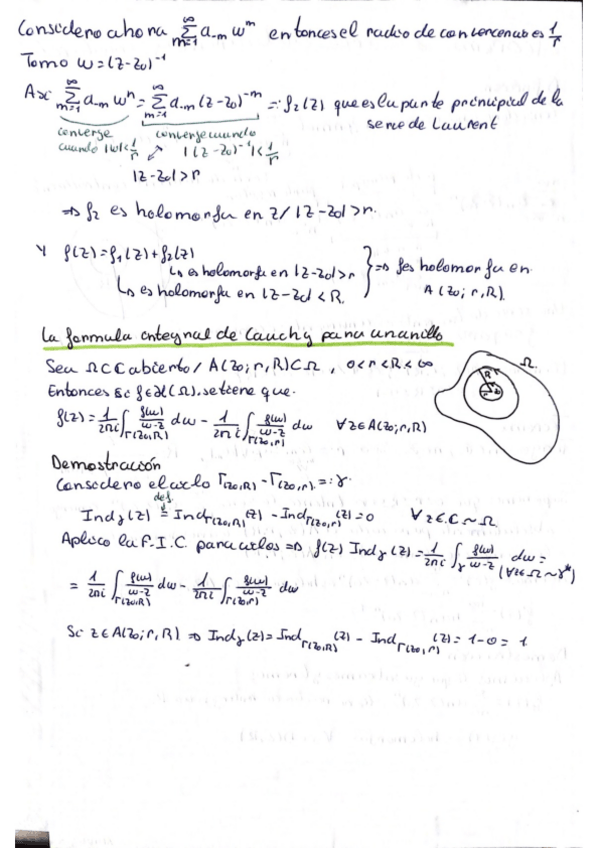 Considero ahora ∑_{m=1}^{∞} a_{-m} w^m entonces el radio de convergencia es 1/r
Tomo w=(z-z₀)^{-1}
Así ∑_{m=1}^{∞} a_{-m} w^m = ∑_{m=1}^{∞} a_{-m} (z-z₀)^{-m} =: f₂(z) que es la parte principal de la
serie de Laurent
converge converge cuando
cuando |w|<1/r |(z-z₀)^{-1}|<1/r
|z-z₀|>r
⇒ f₂ es holomorfa en z/ |z-z₀|>r.
Y f(z)=f₁(z)+f₂(z)
↳ es holomorfa en |z-z₀|>r } ⇒ f es holomorfa en
↳ es holomorfa en |z-z₀|<R. A(z₀; r,R).
La formula integral de Cauchy para un anillo
Sea Ω⊂ℂ abierto/ A(z₀;r,R)⊂Ω, 0<r<R<∞
Ω
R
r
z₀
Entonces si f∈ℋ(Ω), se tiene que.
f(z)=1/2πi ∫_{Γ(z₀,R)} f(w)/w-z dw - 1/2πi ∫_{Γ(z₀,r)} f(w)/w-z dw ∀z∈A(z₀;r,R)
Demostración
Considero el ciclo Γ(z₀,R) - Γ(z₀,r) =: γ.
def.
Ind_γ(z) = Ind_{Γ(z₀,R)}(z) - Ind_{Γ(z₀,r)}(z)=0 ∀z∈ℂ∼Ω
Aplico la F.I.C para ciclos ⇒ f(z) Ind_γ(z)=1/2πi ∫_γ f(w)/w-z dw =
(∀z∈Ω∼γ*)
= 1/2πi ∫_{Γ(z₀,R)} f(w)/w-z dw - 1/2πi ∫_{Γ(z₀,r)} f(w)/w-z dw
Si z∈A(z₀;r,R) ⇒ Ind_γ(z)=Ind_{Γ(z₀,R)}(z) - Ind_{Γ(z₀,r)}(z)=1-0=1